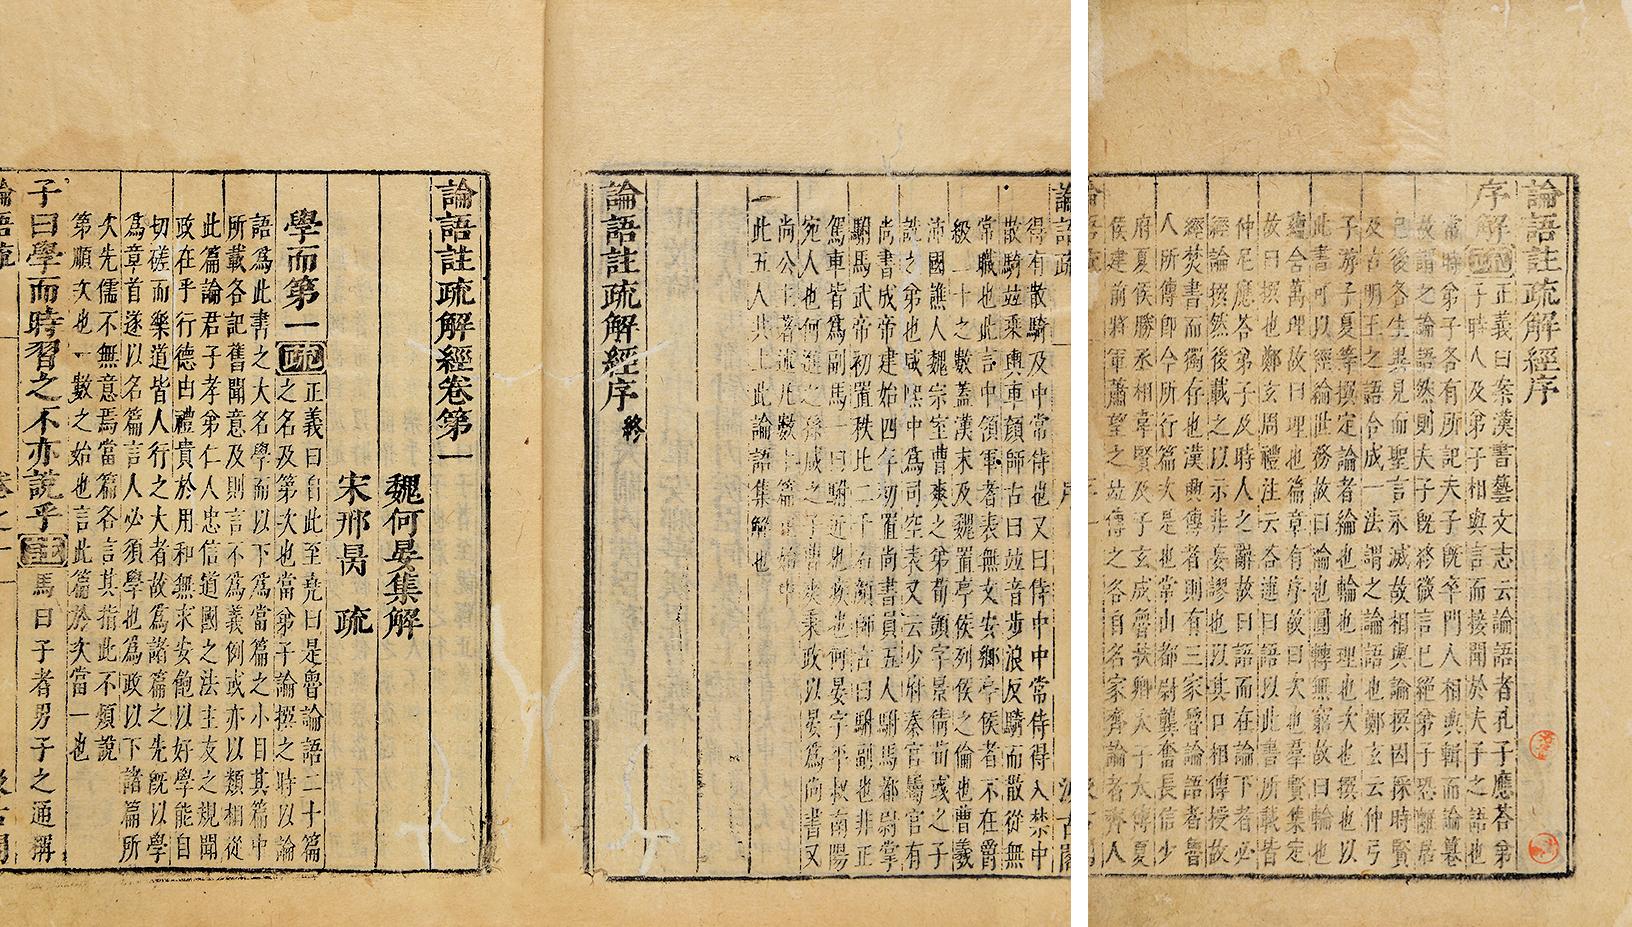 論語註疏解經序
序解疏正義曰案漢書藝文志云論語者孔子應荅弟
子時人及弟子相與言而接聞於夫子之語也
當時弟子各有所記夫子旣卒門人相與輯而論篹
故謂之論語然則夫子旣終微言已絕弟子恐離居
已後各生異見而聖言永滅故相與論撰因採時賢
及古明王之語合成一法謂之論語也鄭玄云仲弓
子游子夏等撰定論者綸也輪也理也次也撰也以
此書可以經綸世務故曰綸也圓轉無窮故曰輪也
蘊含萬理故曰理也篇章有序故曰次也羣賢集定
故曰撰也鄭玄周禮注云荅述曰語以此書所載皆
仲尼應荅弟子及時人之辭故曰語而在論下者必
經論撰然後載之以示非妄謬也以其口相傳授故
經焚書而獨存也漢興傳者則有三家魯論語者魯
人所傳卽今所行篇次是也常山都尉龔奮長信少
府夏侯勝丞相韋賢及子玄成魯扶卿太子太傅夏
侯建前將軍蕭望之竝傳之各自名家齊論者齊人
論語疏 序
論語疏 序 汲古閣
得有散騎及中常侍也又曰侍中中常侍得入禁中
散騎竝乘輿車顏師古曰竝音步浪反騎而散從無
常職也此言中領軍者表無文安鄉亭侯者不在爵
級二十之數蓋漢末及魏置亭侯列侯之倫也曹羲
沛國譙人魏宗室曹爽之弟荀顗字景倩荀彧之子
詵之弟也咸熙中爲司空表又云少府秦官屬官有
尚書成帝建始四年初置尚書員五人駙馬都尉掌
駙馬武帝初置秩比二千石顏師古曰駙副也非正
駕車皆爲副馬一曰駙近也疾也何晏字平叔南陽
宛人也何進之孫咸之子曹爽秉政以晏爲尚書又
尚公主著述凡數十篇正始中
此五人共上此論語集解也
論語註疏解經序終
論語註疏解經卷第一
魏何晏集解
宋邢昺 疏
學而第一疏正義曰自此至堯曰是魯論語二十篇
之名及第次也當弟子論撰之時以論
語爲此書之大名學而以下爲當篇之小目其篇中
所載各記舊聞意及則言不爲義例或亦以類相從
此篇論君子孝弟仁人忠信道國之法主友之規聞
政在乎行德由禮貴於用和無求安飽以好學能自
切磋而樂道皆人行之大者故爲諸篇之先旣以學
爲章首遂以名篇言人必須學也爲政以下諸篇所
次先儒不無意焉當篇各言其指此不煩說
第順次也一數之始也言此篇於次當一也
子曰學而時習之不亦說乎註馬曰子者男子之通稱
論語疏 卷之一 汲古閣